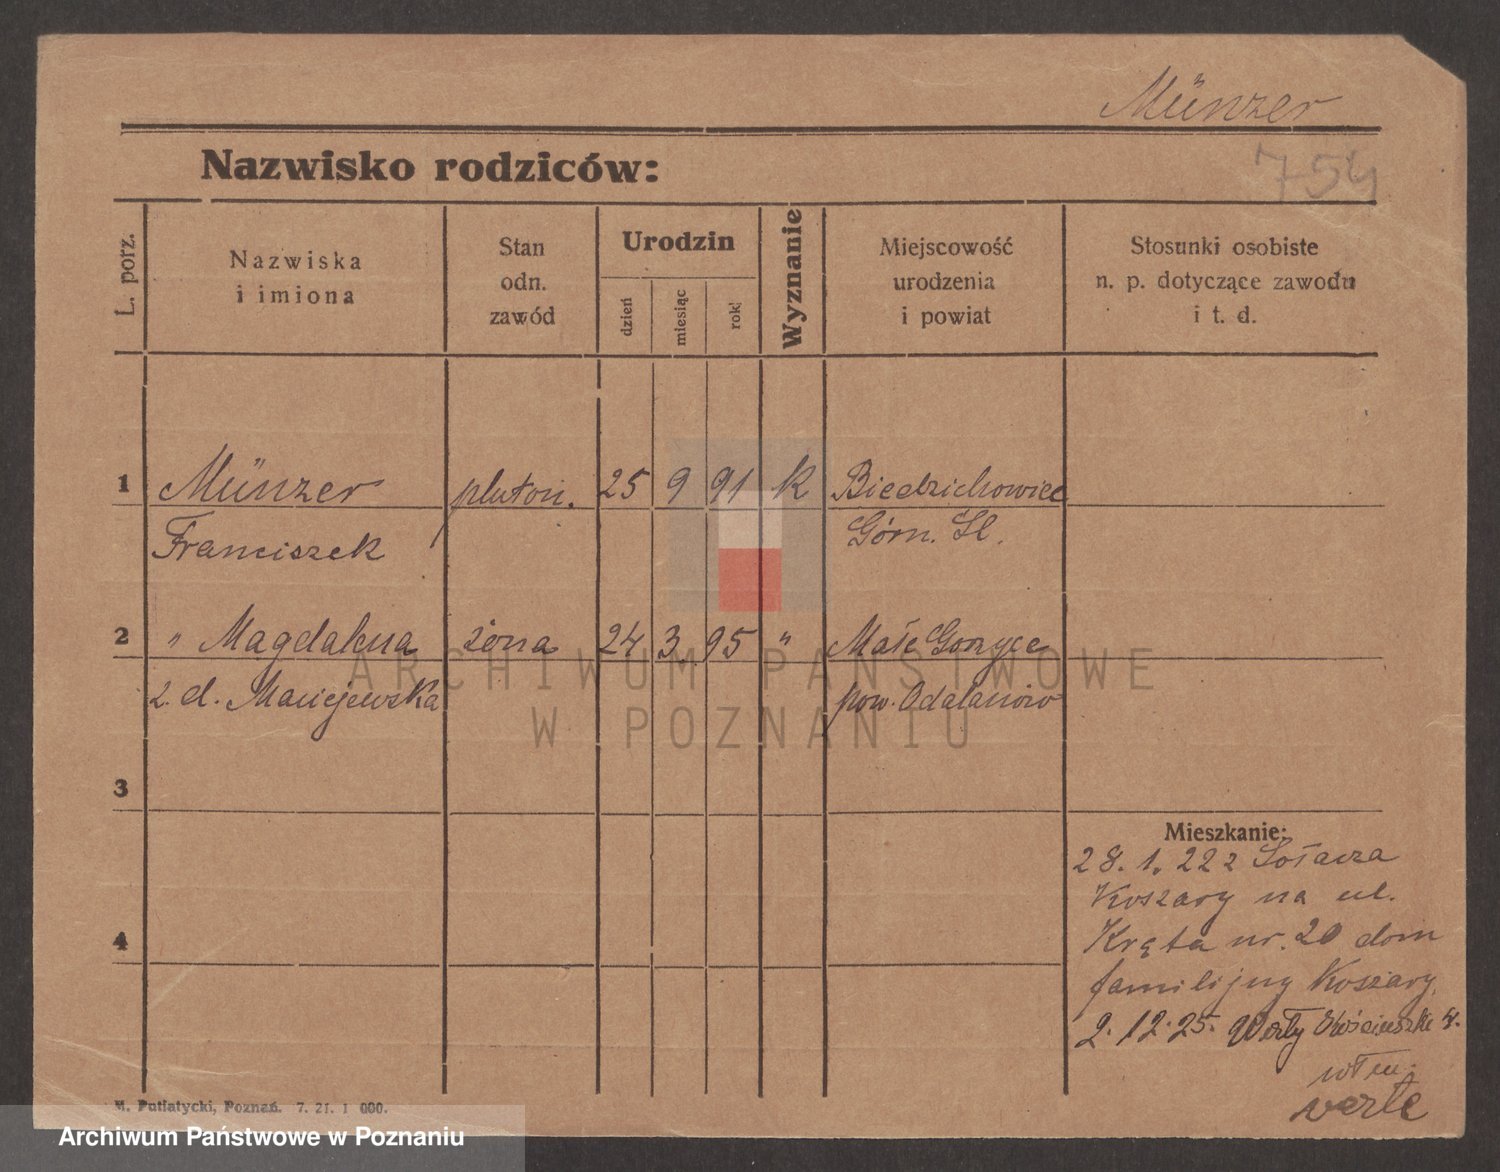 Münzer
Nazwisko rodziców:
754
L. porz.
Nazwiska
i imiona
Stan
odn.
zawód
Urodzin
dzień
miesiąc
rok
Wyznanie
Miejscowość
urodzenia
i powiat
Stosunki osobiste
n. p. dotyczące zawodu
i t. d.
1 Münzer pluton. 25 9 91 k Biedrzichowice
Franciszek Górn. Śl.
2 " Magdalena żona 24 3 95 " Małe Gorzyce
z. d. Maciejewska pow. Odalanów
3
Mieszkanie:
28. 1. 22 z Sołacza
Koszary na ul.
4
Kręta nr. 20 dom
familijny Koszary.
2. 12. 25. Kościuszki
verte
M. Putiatycki, Poznań. 7. 21. 1 000.
ARCHIWUM PAŃSTWOWE
W POZNANIU
Archiwum Państwowe w Poznaniu